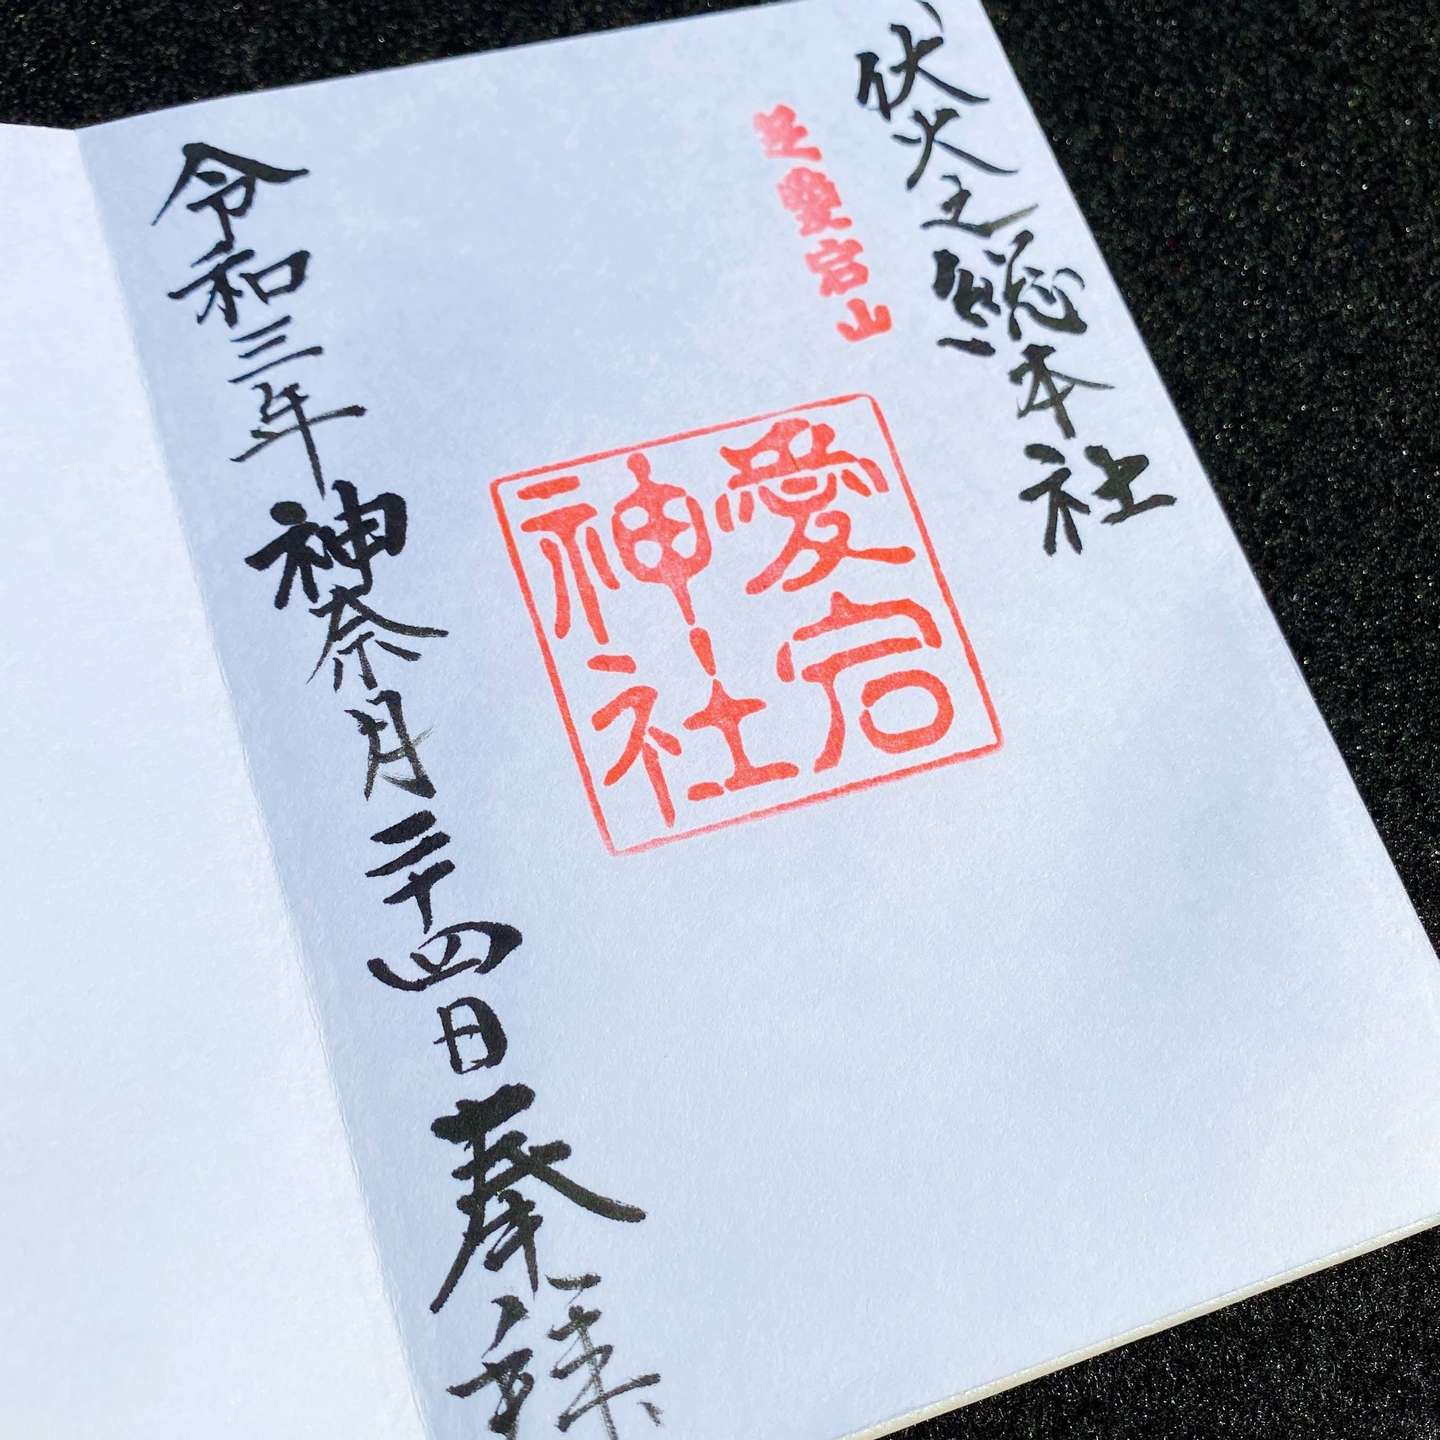 伏火之総本社
芝愛宕山
愛宕
神社
令和三年神奈月二十四日奉拝